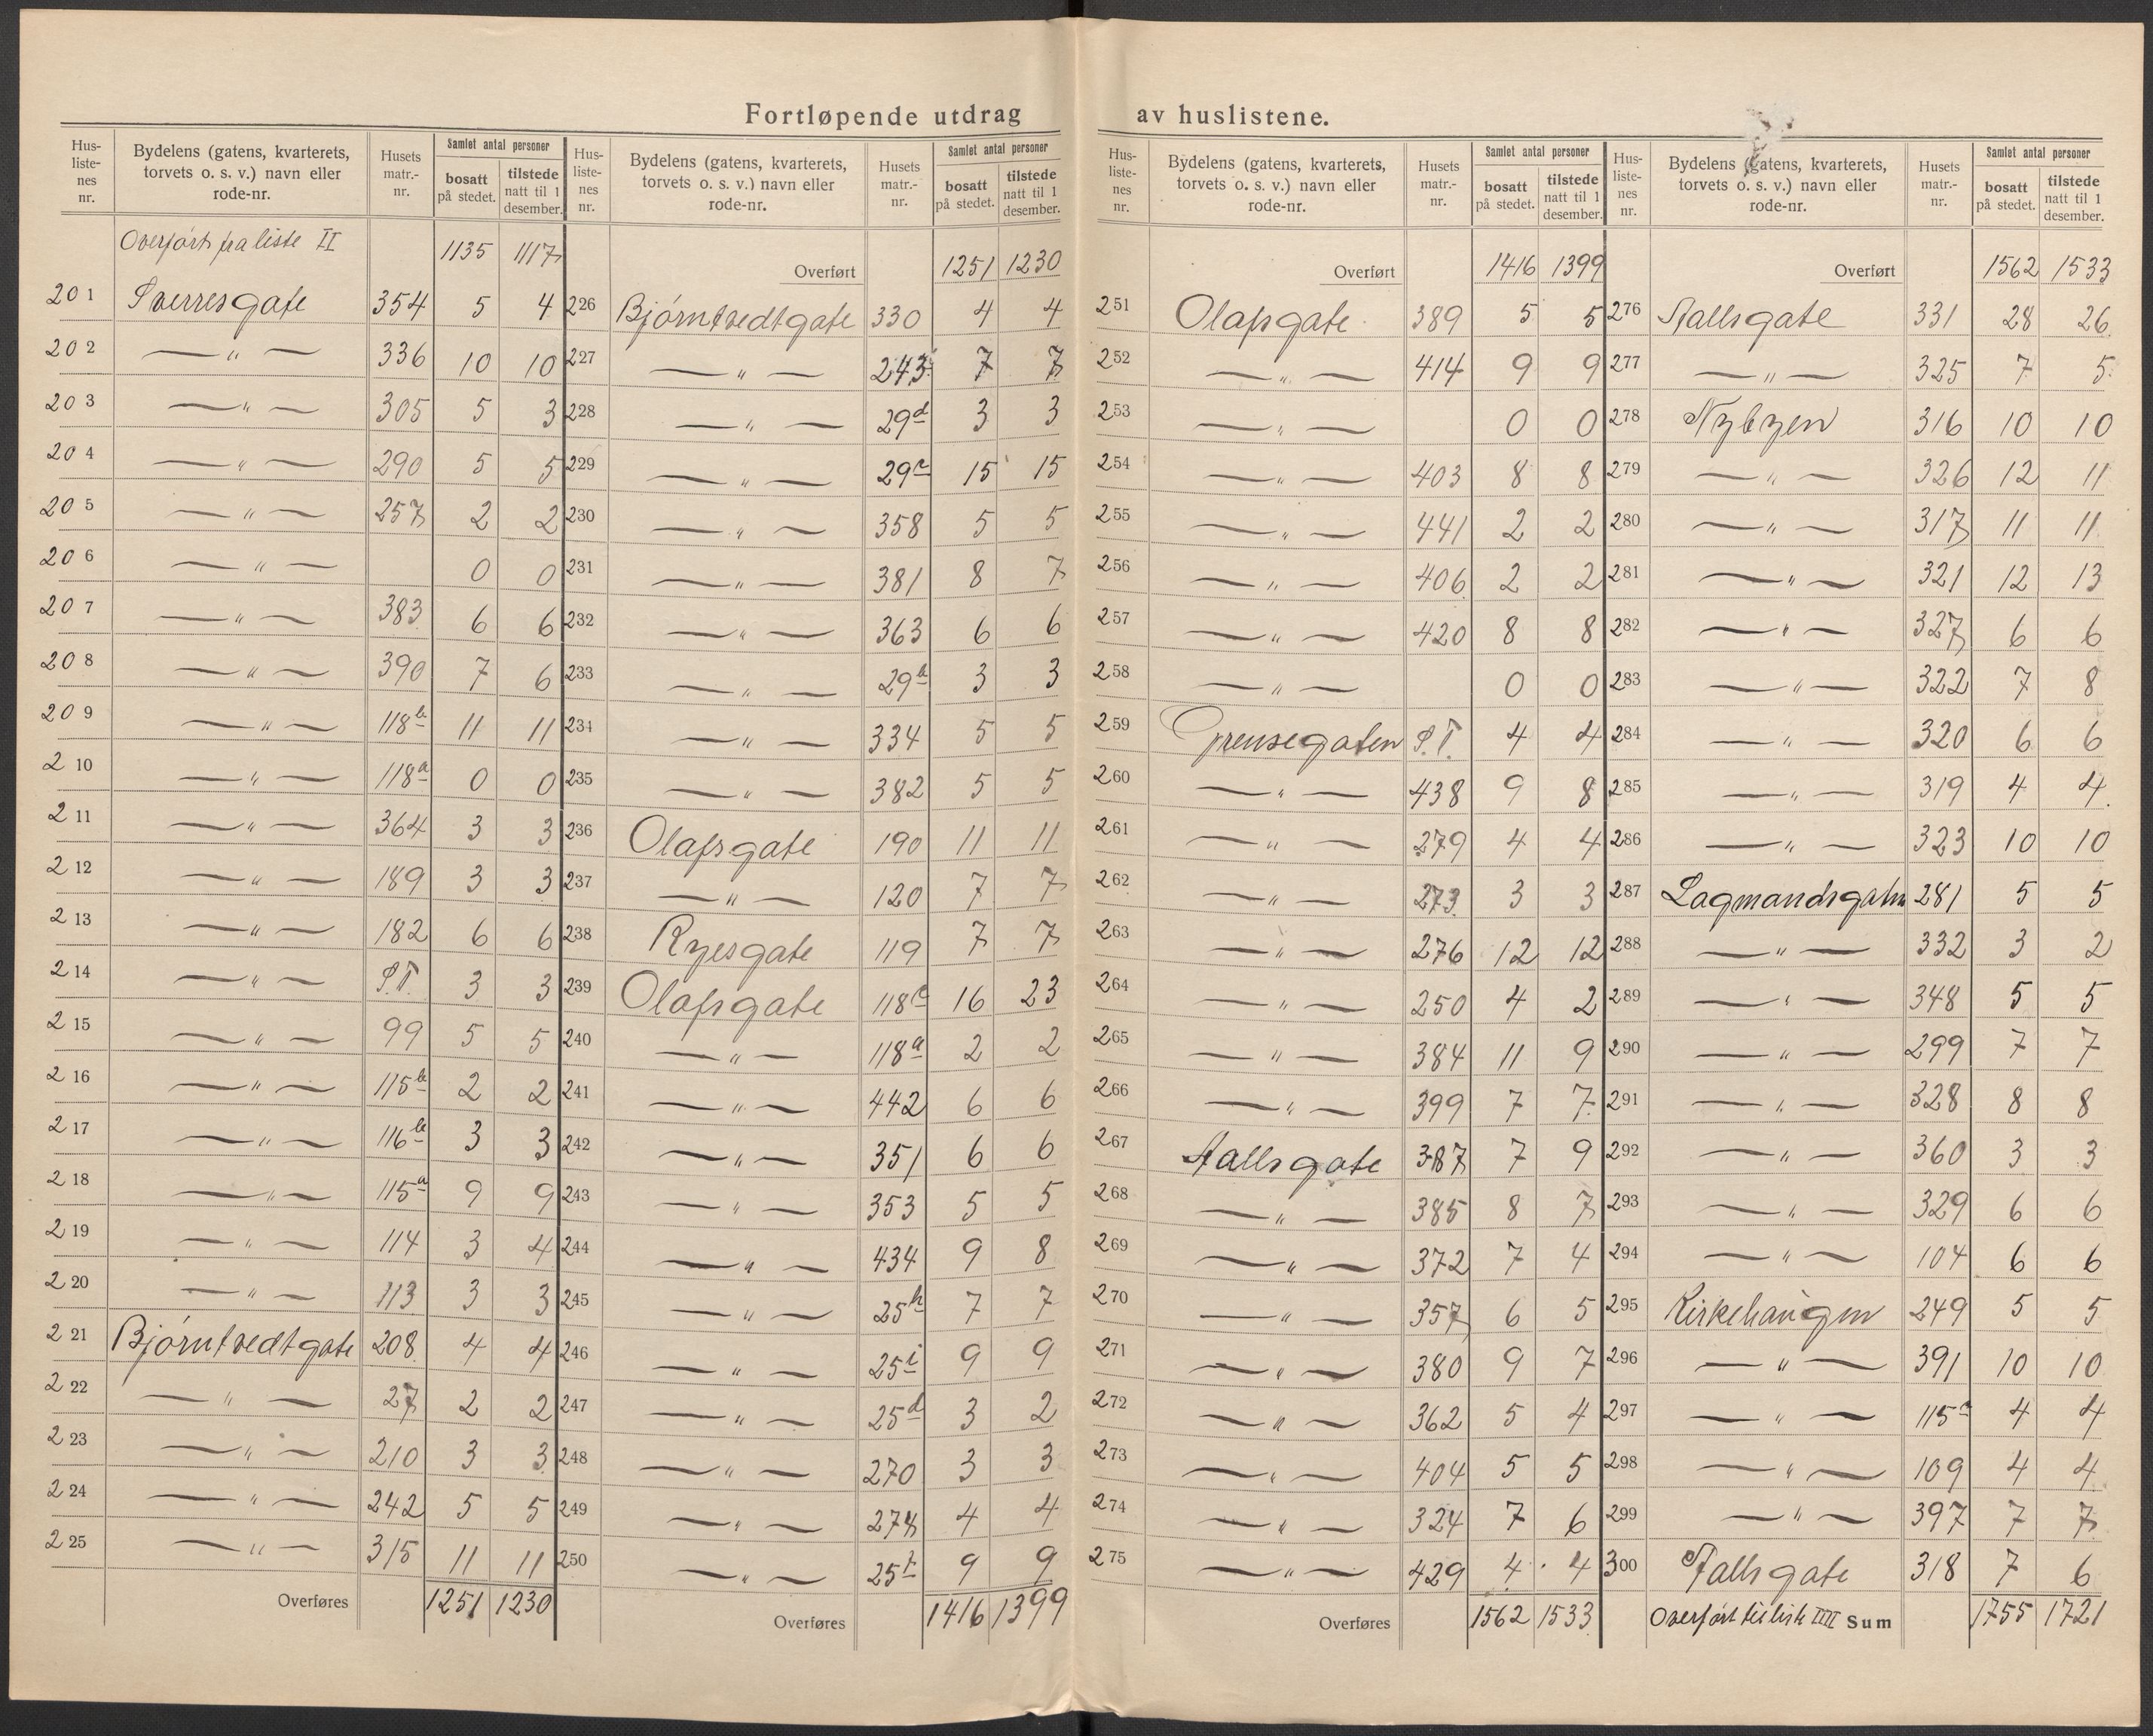 Fortløpende utdrag av huslistene.
Hus-liste-nes nr. | Bydelens (gatens, kvarterets, torvets o. s. v.) navn eller rode-nr. | Husets matr.-nr. | Samlet antal personer | bosatt på stedet. | tilstede natt til 1 desember.
Overført fra liste II 1135 1117
201 Sverresgate 354 5 4
202 —„— 336 10 10
203 —„— 305 5 3
204 —„— 290 5 5
205 —„— 257 2 2
206 —„— 0 0
207 —„— 383 6 6
208 —„— 390 7 6
209 —„— 118b 11 11
210 —„— 118a 0 0
211 —„— 364 3 3
212 —„— 189 3 3
213 —„— 182 6 6
214 —„— S.T. 3 3
215 —„— 99 5 5
216 —„— 115b 2 2
217 —„— 116b 3 3
218 —„— 115a 9 9
219 —„— 114 3 4
220 —„— 113 3 3
221 Bjørntvedtgate 208 4 4
222 —„— 27 2 2
223 —„— 210 3 3
224 —„— 242 5 5
225 —„— 315 11 11
Overføres 1251 1230
Hus-liste-nes nr. | Bydelens (gatens, kvarterets, torvets o. s. v.) navn eller rode-nr. | Husets matr.-nr. | Samlet antal personer | bosatt på stedet. | tilstede natt til 1 desember.
Overført 1251 1230
226 Bjørntvedtgate 330 4 4
227 —„— 243 7 7
228 —„— 29d 3 3
229 —„— 29c 15 15
230 —„— 358 5 5
231 —„— 381 8 7
232 —„— 363 6 6
233 —„— 29b 3 3
234 —„— 334 5 5
235 —„— 382 5 5
236 Olafsgate 190 11 11
237 —„— 120 7 7
238 Ryesgate 119 7 7
239 Olafsgate 118c 16 23
240 —„— 118a 2 2
241 —„— 442 6 6
242 —„— 351 6 6
243 —„— 353 5 5
244 —„— 434 9 8
245 —„— 25h 7 7
246 —„— 25i 9 9
247 —„— 25d 3 2
248 —„— 270 3 3
249 —„— 274 4 4
250 —„— 25 9 9
Overføres 1416 1399
Hus-liste-nes nr. | Bydelens (gatens, kvarterets, torvets o. s. v.) navn eller rode-nr. | Husets matr.-nr. | Samlet antal personer | bosatt på stedet. | tilstede natt til 1 desember.
Overført 1416 1399
251 Olafsgate 389 5 5
252 —„— 414 9 9
253 —„— 0 0
254 —„— 403 8 8
255 —„— 441 2 2
256 —„— 406 2 2
257 —„— 420 8 8
258 —„— 0 0
259 Grensegaten S.T. 4 4
260 —„— 438 9 8
261 —„— 279 4 4
262 —„— 273 3 3
263 —„— 276 12 12
264 —„— 250 4 2
265 —„— 384 11 9
266 —„— 399 7 7
267 Hallsgate 387 7 9
268 —„— 385 8 7
269 —„— 372 7 4
270 —„ 357 6 5
271 —„— 380 9 7
272 —„— 362 5 4
273 —„— 404 5 5
274 —„— 324 7 6
275 —„— 429 4 4
Overføres 1562 1533
Hus-liste-nes nr. | Bydelens (gatens, kvarterets, torvets o. s. v.) navn eller rode-nr. | Husets matr.-nr. | Samlet antal personer | bosatt på stedet. | tilstede natt til 1 desember.
Overført 1562 1533
276 Hallsgate 331 28 26
277 —„— 325 7 5
278 Nybyen 316 10 10
279 —„— 326 12 11
280 —„— 317 11 11
281 —„— 321 12 13
282 —„— 327 6 6
283 —„— 322 7 8
284 —„— 320 6 6
285 —„— 319 4 4
286 —„— 323 10 10
287 Lagmandsgaten 281 5 5
288 —„— 332 3 2
289 —„— 348 5 5
290 —„— 299 7 7
291 —„— 328 8 8
292 —„— 360 3 3
293 —„— 329 6 6
294 —„— 104 6 6
295 Kirkehaugen 249 5 5
296 —„— 391 10 10
297 —„— 115 4 4
298 —„— 109 4 4
299 —„— 397 7 7
300 Hallsgate 318 7 6
Overført til liste IIII Sum 1755 1721